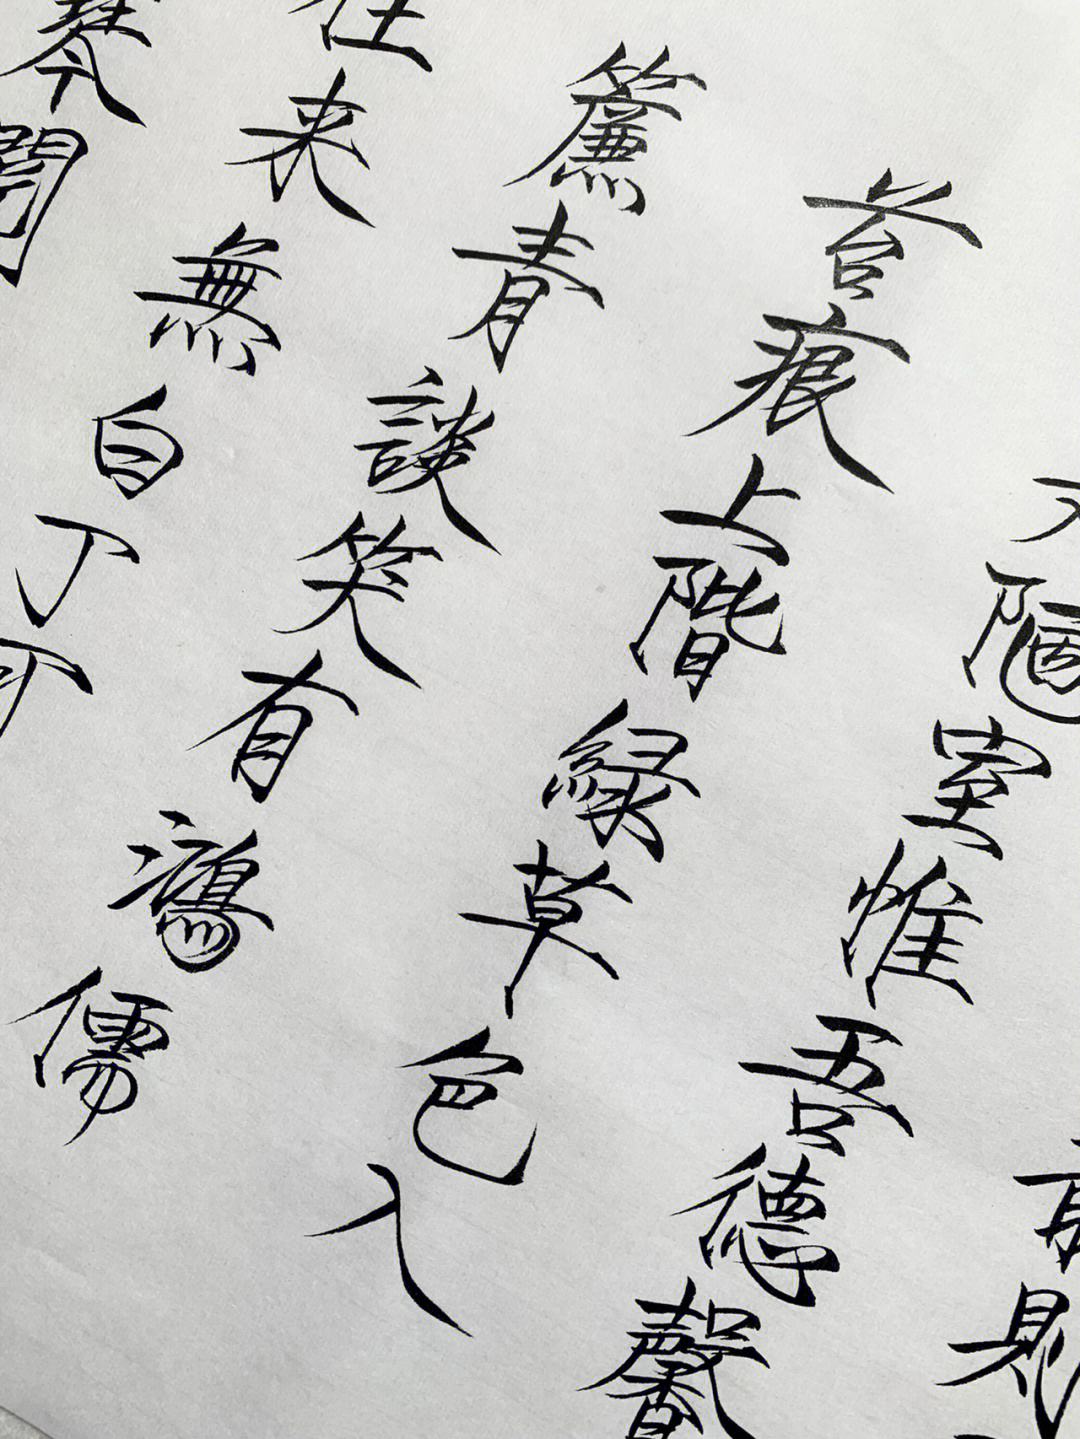 則
陋室惟吾德馨
苔痕上階緑草色入
簾青談笑有鴻儒
往来無白丁可
琴閱